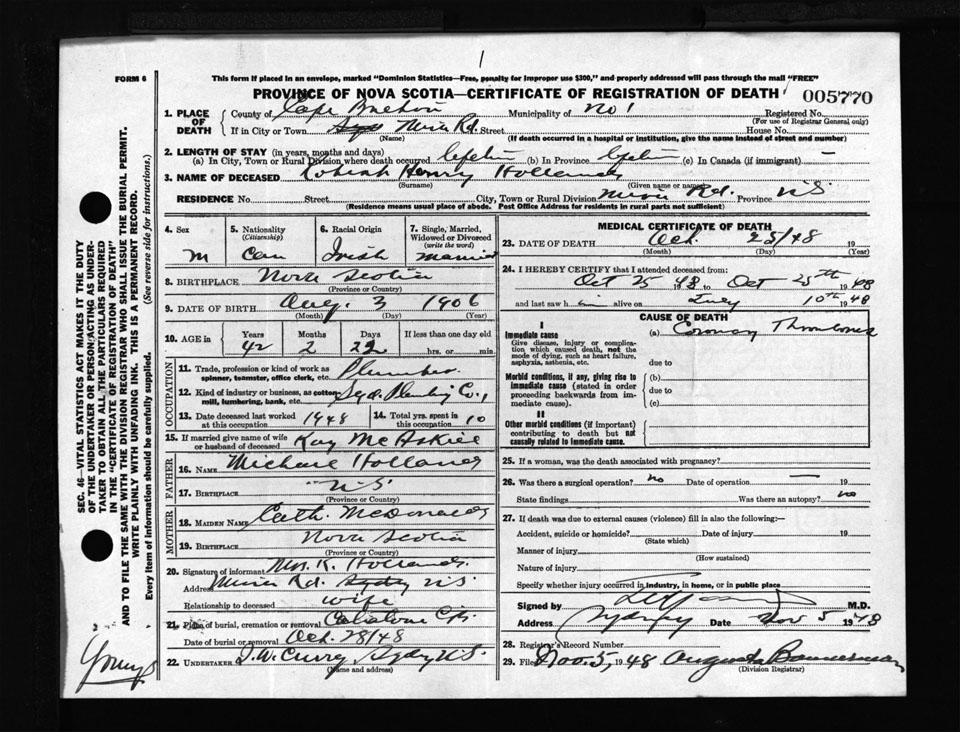 1
FORM 6
This form if placed in an envelope, marked "Dominion Statistics—Free, penalty for improper use $300," and properly addressed will pass through the mail "FREE"
PROVINCE OF NOVA SCOTIA—CERTIFICATE OF REGISTRATION OF DEATH
005770
1. PLACE OF DEATH
County of Cape Breton Municipality of No 1 Registered No.
(For use of Registrar General only)
If in City or Town Mira Rd. Street House No.
(Name) (If death occurred in a hospital or institution, give the name instead of street and number)
2. LENGTH OF STAY (in years, months and days)
(a) In City, Town or Rural Division where death occurred lifetime (b) In Province lifetime (c) In Canada (if immigrant) —
3. NAME OF DECEASED Henry Holland
(Surname) (Given name or names)
RESIDENCE No. Street City, Town or Rural Division Mira Rd. Province N.S.
(Residence means usual place of abode. Post Office Address for residents in rural parts not sufficient)
4. Sex M
5. Nationality (Citizenship) Can
6. Racial Origin Irish
7. Single, Married, Widowed or Divorced (write the word) Married
8. BIRTHPLACE Nova Scotia
(Province or Country)
9. DATE OF BIRTH Aug. 3 1906
(Month) (Day) (Year)
10. AGE in Years 42 Months 2 Days 22 If less than one day old hrs. or min.
OCCUPATION
11. Trade, profession or kind of work as spinner, teamster, office clerk, etc. Plumber
12. Kind of industry or business, as cotton mill, lumbering, bank, etc. Syd. Plumbing Co.,
13. Date deceased last worked at this occupation 1948
14. Total yrs. spent in this occupation 10
15. If married give name of wife or husband of deceased Kay McAskill
FATHER
16. Name Michael Holland
17. Birthplace N.S.
(Province or Country)
MOTHER
18. Maiden Name Cath. McDonald
19. Birthplace Nova Scotia
(Province or Country)
20. Signature of informant Mrs. K. Holland.
Address Mira Rd. Sydney N.S.
Relationship to deceased wife
21. Place of burial, cremation or removal
Date of burial or removal Oct. 28/48
22. UNDERTAKER Curry, Sydney N.S.
(Name and address)
MEDICAL CERTIFICATE OF DEATH
23. DATE OF DEATH Oct. 25/48 19
(Month) (Day) (Year)
24. I HEREBY CERTIFY that I attended deceased from:
Oct 25 1948 to Oct 25th 1948
and last saw him alive on July 10th 1948
CAUSE OF DEATH
I
Immediate cause
Give disease, injury or complication which caused death, not the mode of dying, such as heart failure, asphyxia, asthenia, etc.
(a) Coronary Thrombosis
due to
Morbid conditions, if any, giving rise to immediate cause (stated in order proceeding backwards from immediate cause).
(b)
due to
(c)
II
Other morbid conditions (if important) contributing to death but not causally related to immediate cause.
25. If a woman, was the death associated with pregnancy?
26. Was there a surgical operation? no Date of operation —
State findings Was there an autopsy? no
27. If death was due to external causes (violence) fill in also the following:—
Accident, suicide or homicide? Date of injury 19
(State which)
Manner of injury
(How sustained)
Nature of injury
Specify whether injury occurred in industry, in home, or in public place
Signed by M.D.
Address Sydney Date Nov 5 1948
28. Registrar's Record Number
29. Filed Nov. 5, 1948 Augusta Bannerman
(Division Registrar)
SEC. 46—VITAL STATISTICS ACT MAKES IT THE DUTY
OF THE UNDERTAKER OR PERSON ACTING AS UNDER-
TAKER TO OBTAIN ALL THE PARTICULARS REQUIRED
IN THE "CERTIFICATE OF REGISTRATION OF DEATH"
AND TO FILE THE SAME WITH THE DIVISION REGISTRAR WHO SHALL ISSUE THE BURIAL PERMIT.
WRITE PLAINLY WITH UNFADING INK. THIS IS A PERMANENT RECORD.
Every item of information should be carefully supplied. (See reverse side for instructions.)